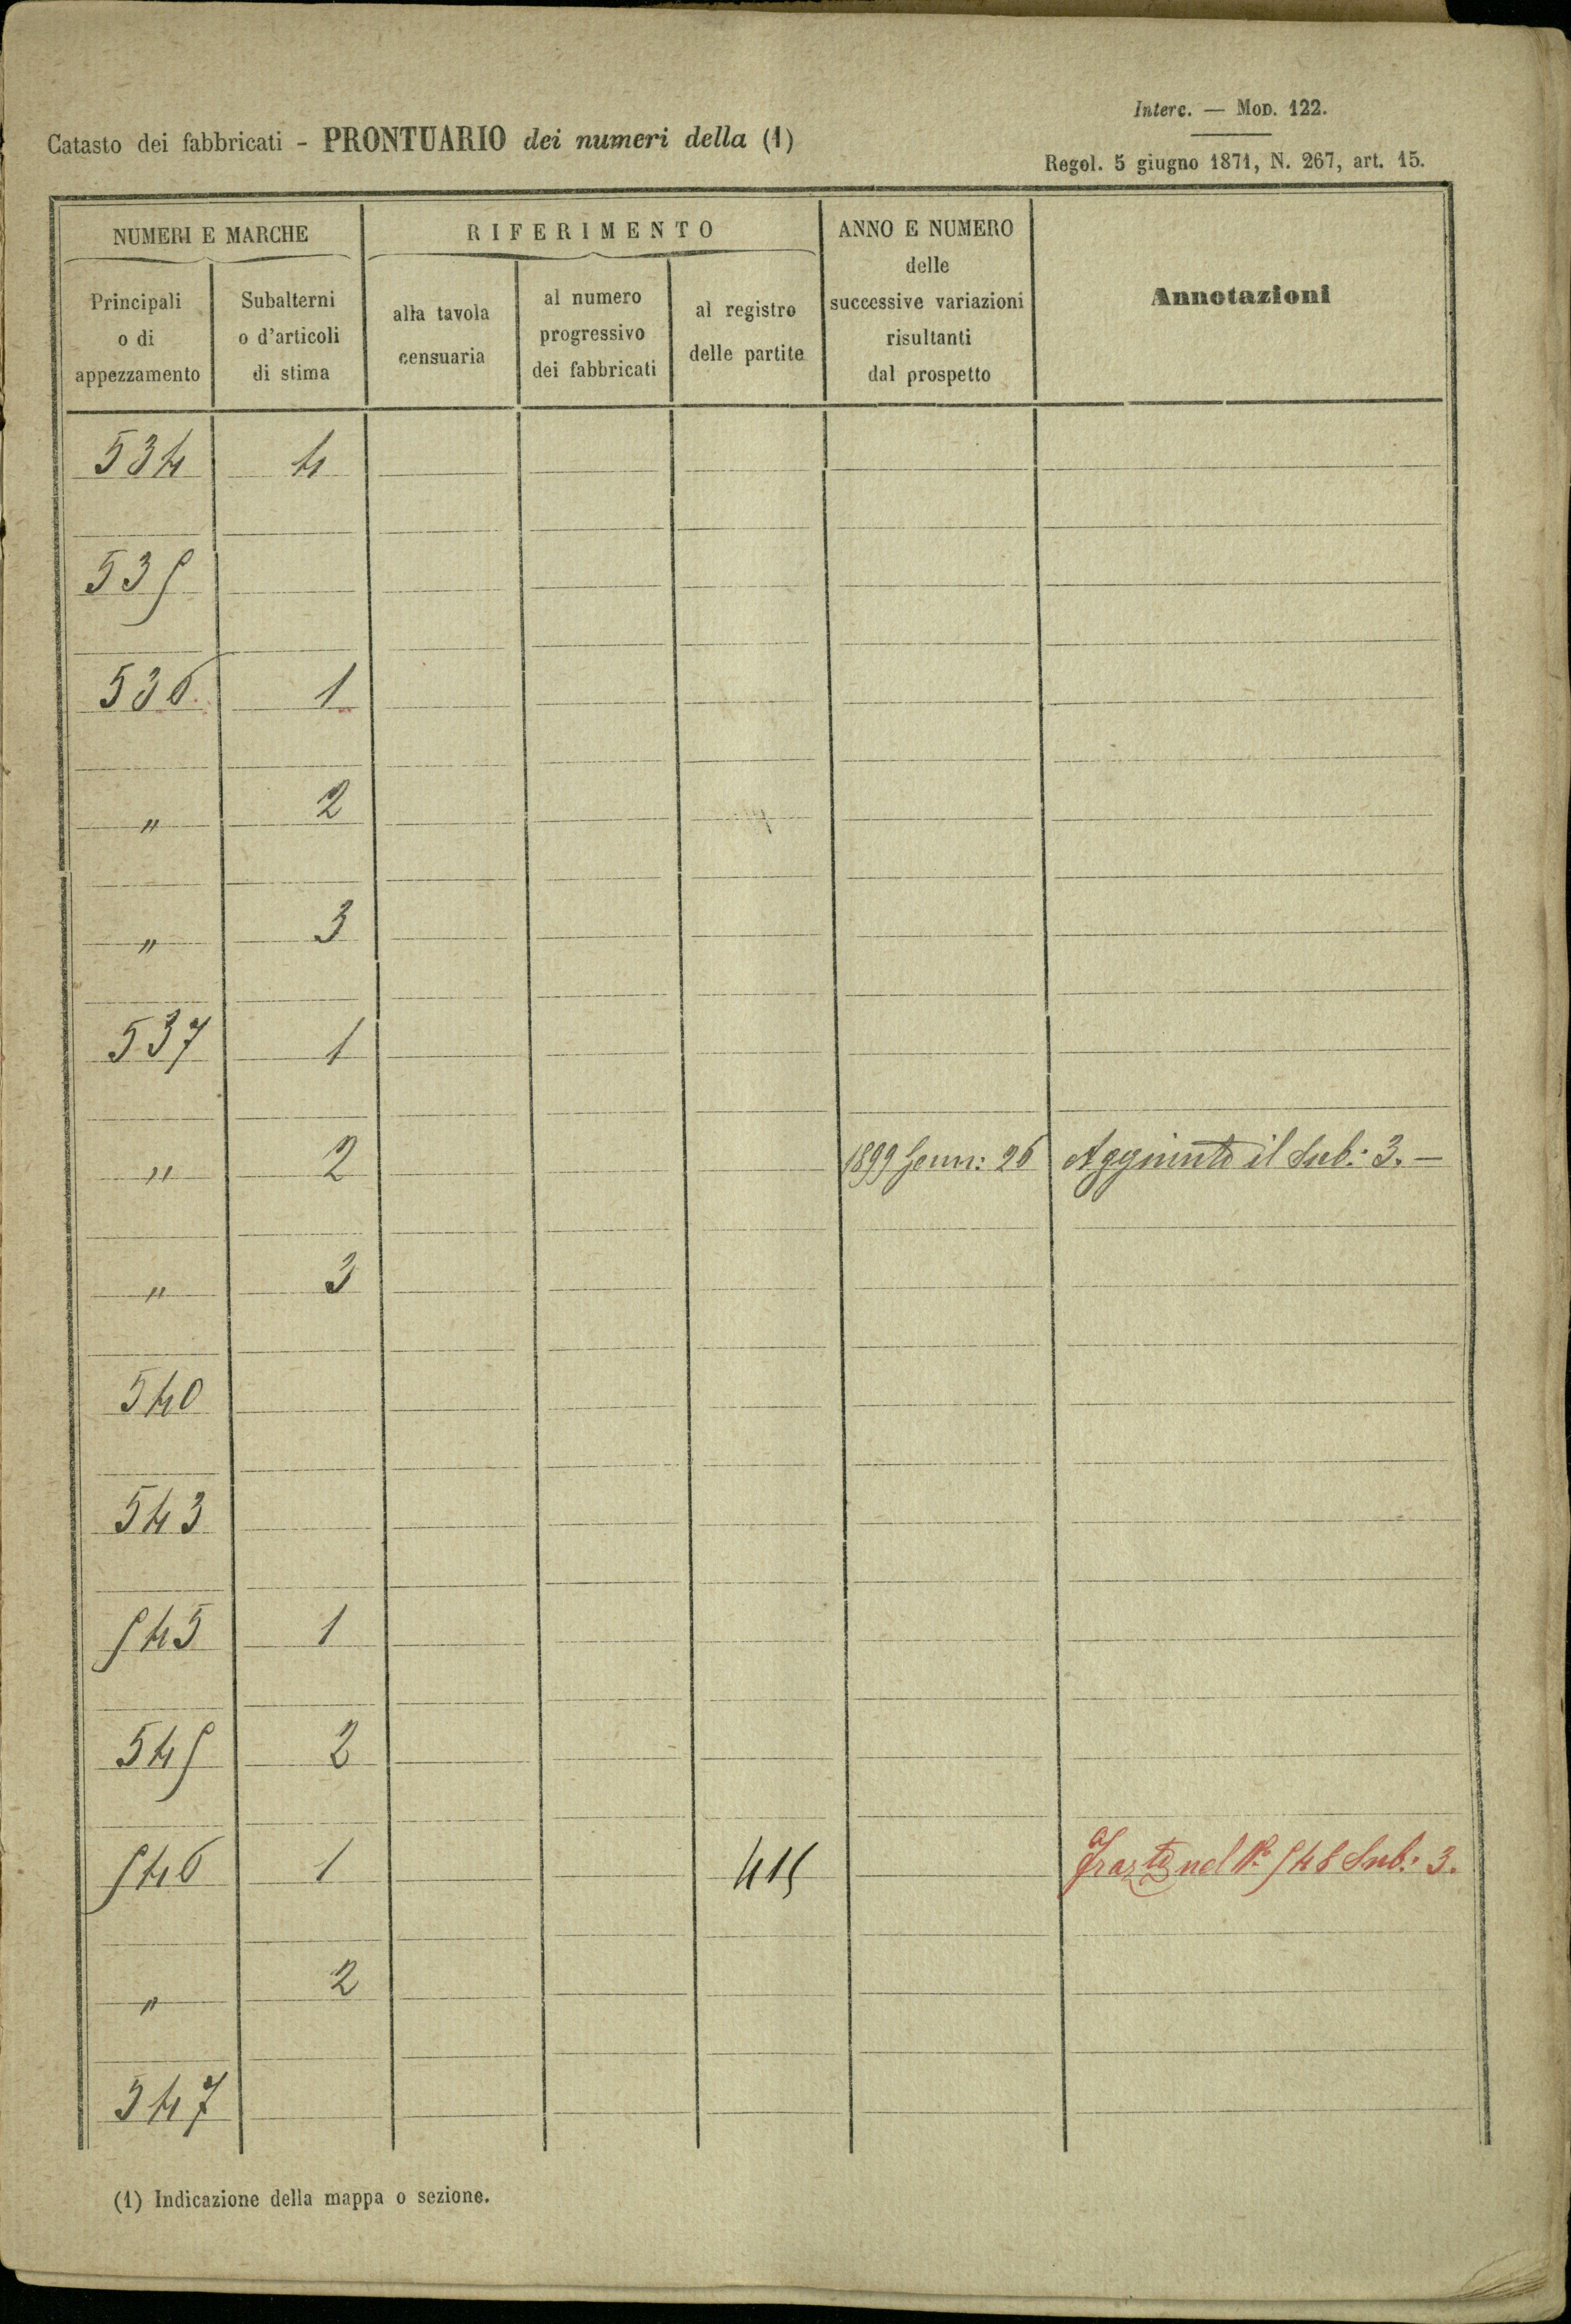 Interc. — Mod. 122.
Catasto dei fabbricati - PRONTUARIO dei numeri della (1)
Regol. 5 giugno 1871, N. 267, art. 15.
NUMERI E MARCHE
RIFERIMENTO
ANNO E NUMERO
delle
successive variazioni
risultanti
dal prospetto
Annotazioni
Principali
o di
appezzamento
Subalterni
o d'articoli
di stima
alla tavola
censuaria
al numero
progressivo
dei fabbricati
al registro
delle partite
534 4
535
536. 1
" 2
" 3
537 1
" 2 1899 Genn: 26 Aggiunto il Sub: 3. —
" 3
540
543
545 1
545 2
546 1 415 nel N° 548 Sub: 3.
" 2
547
(1) Indicazione della mappa o sezione.